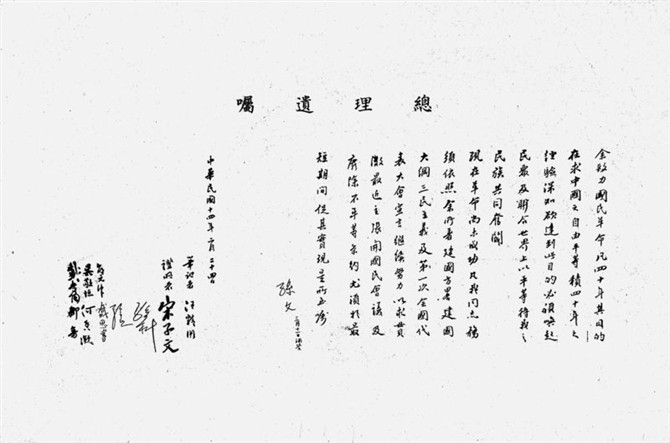 總理遺囑
余致力國民革命凡四十年其目的
在求中國之自由平等積四十年之
經驗深知欲達到此目的必須喚起
民眾及聯合世界上以平等待我之
民族共同奮鬥
現在革命尚未成功凡我同志務
須依照余所著建國方畧建國
大綱三民主義及第一次全國代
表大會宣言繼續努力以求貫
澈最近主張開國民會議及
廢除不平等條約尤須於最
短期間促其實現是所至囑
孫文
中華民國十四年二月二十四日
筆記者 汪精衛
證明者 宋子文
孫科
戴恩賽
吳敬恆 何香凝
鄒魯